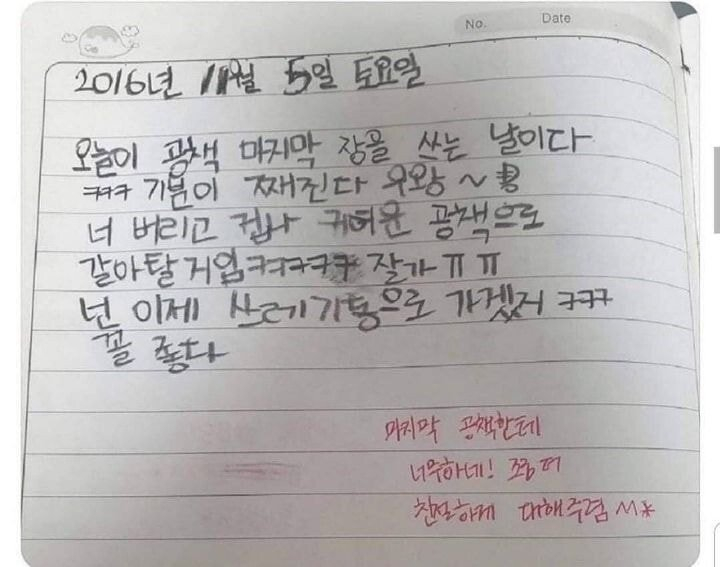 No. Date
2016년 11월 5일 토요일
오늘이 공책 마지막 장을 쓰는 날이다
ㅋㅋㅋ 기분이 째진다 우왕~
너 버리고 겁나 귀여운 공책으로
갈아탈거임ㅋㅋㅋㅋㅋ 잘가ㅠㅠ
넌 이제 쓰레기통으로 가겠지 ㅋㅋㅋ
꼴 좋다
마지막 공책한테
너무하네! 좀 더
친절하게 대해주렴 ^^*